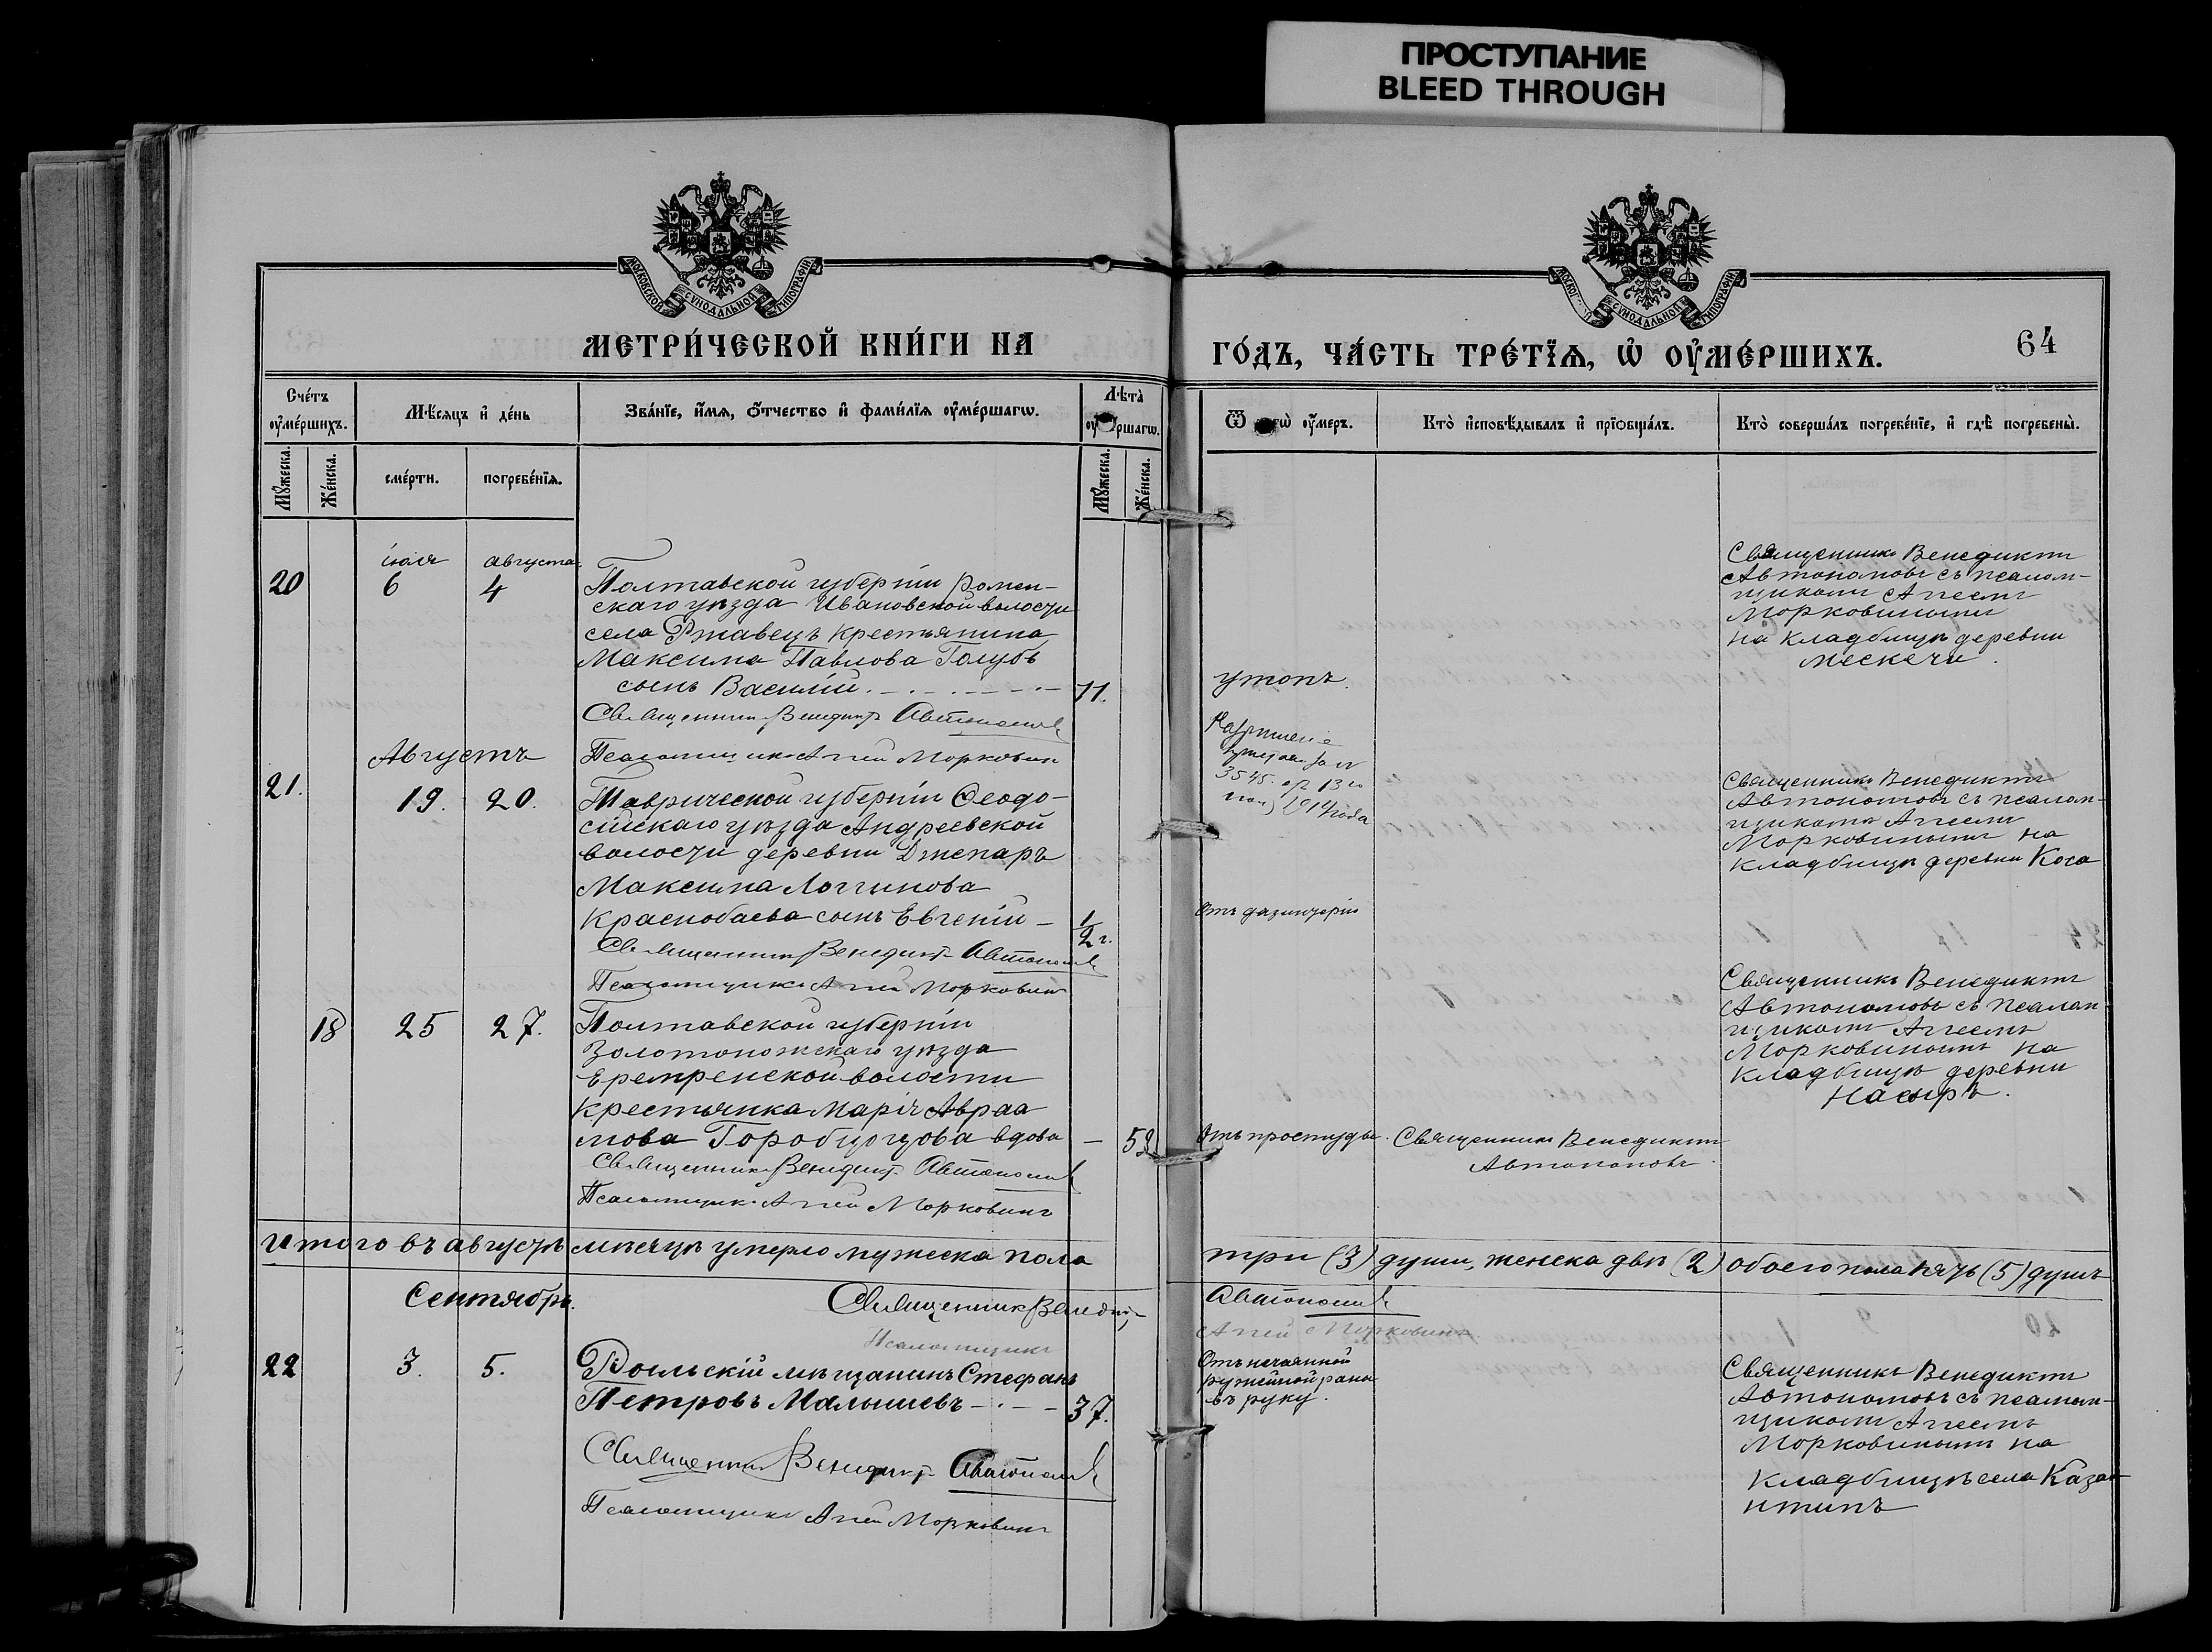 ПРОСТУПАНИЕ
BLEED THROUGH
МОСКОВСКОЙ СѴНОДАЛЬНОЙ ТИПОГРАФІИ
СѴНОДАЛЬНОЙ ТИПОГРАФІИ
МЕТРИ́ЧЕСКОЙ КНИ́ГИ НА
ГО́ДЪ, ЧА́СТЬ ТРЕ́ТЇѦ, Ѡ҆ ОУ҆МЕ́РШИХЪ.
64
Сче́тъ оу҆ме́ршихъ.
Мѣ́сяцъ и҆ де́нь
Зва́нїе, и҆́мѧ, ѻ҆́тчество и҆ фами́лїѧ оу҆ме́ршагѡ.
Лѣ́та
Ѿ оу҆́меръ.
Кто̀ и҆сповѣ́дывалъ и҆ прїѡбща́лъ.
Кто̀ соверша́лъ погребе́нїе, и҆ гдѣ̀ погребены̀.
Мꙋ́жеска.
Же́нска.
сме́рти.
погребе́нїѧ.
Мꙋ́жеска.
Же́нска.
іюля
августа.
20
6
4
Полтавской губерніи Ромен-
скаго уѣзда Ивановской волости
села Ржавецъ крестьянина
Максима Павлова Голубъ
сынъ Василій
11.
Священникъ Венедиктъ Автономовъ
Псаломщикъ Агей Морковинъ
утопъ.
3545
13
1914 года
Священникъ Венедиктъ
Автономовъ съ псалом-
щикомъ Агеемъ
Морковинымъ
на кладбищѣ деревни
Мескечи.
Августъ
21.
19.
20.
Таврической губерніи Ѳеодо-
сійскаго уѣзда Андреевской
волости деревни Джепаръ
Максима Логгинова
Краснобаева сынъ Евгеній –
1/2 г.
Священникъ Венедиктъ Автономовъ
Псаломщикъ Агей Морковинъ
Отъ дизинтеріи
Священникъ Венедиктъ
Автономовъ съ псалом-
щикомъ Агеемъ
Морковинымъ на
кладбищѣ деревни Коса
18
25
27.
Полтавской губерніи
Золотоножскаго уѣзда
волости
крестьянка Марія Авраа
мова вдова –
Священникъ Венедиктъ Автономовъ
Псаломщикъ Агей Морковинъ
Отъ простуды.
Священникъ Венедиктъ
Автономовъ.
Священникъ Венедиктъ
Автономовъ съ псалом-
щикомъ Агеемъ
Морковинымъ на
кладбищѣ деревни
Насыръ.
Итого въ августѣ мѣсяцѣ умерло мужеска пола
три (3) души, женска двѣ (2) обоего пола пять (5) душъ
Священникъ Венедиктъ
Автономовъ
Псаломщикъ
Агей Морковинъ.
Сентябрь.
22
3.
5.
Рыльскій мѣщанинъ Стефанъ
Петровъ Малышевъ
37.
Священникъ Венедиктъ Автономовъ
Псаломщикъ Агей Морковинъ
Отъ нечаянной
ружейной раны
въ руку.
Священникъ Венедиктъ
Автономовъ съ псалом-
щикомъ Агеемъ
Морковинымъ на
кладбищѣ села Казан-
нтипъ